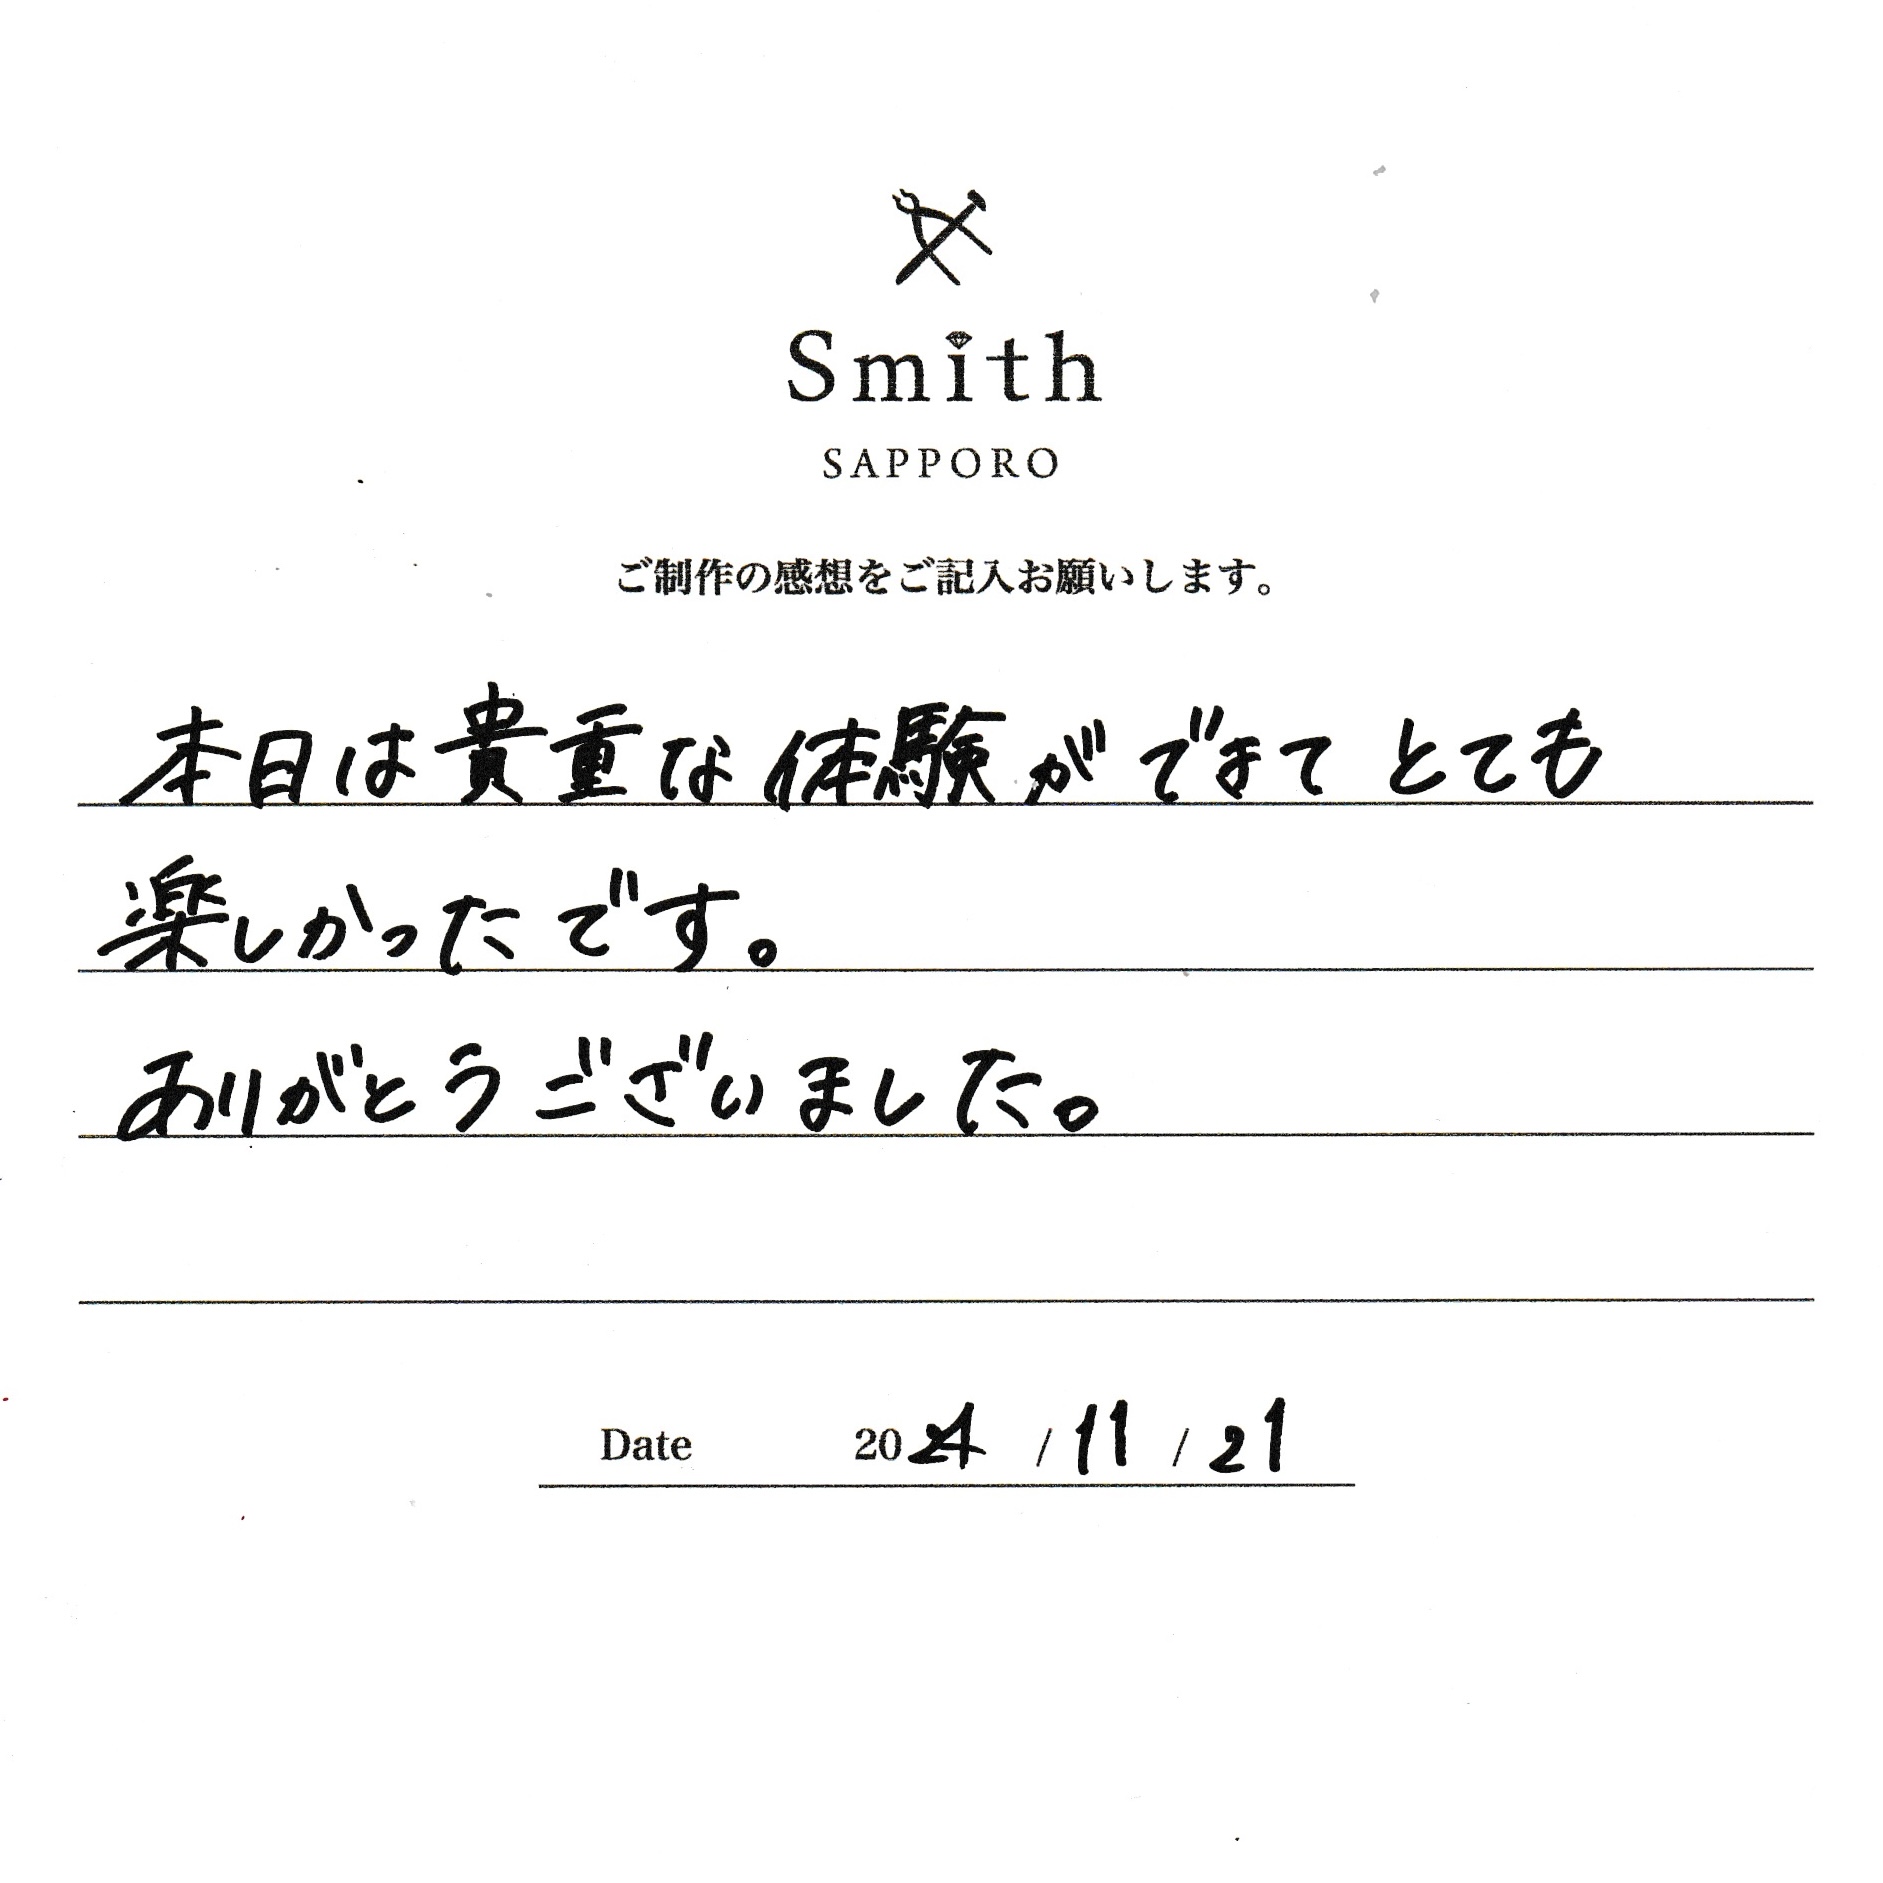 Smith
SAPPORO
ご制作の感想をご記入お願いします。
本日は貴重な体験ができてとても
楽しかったです。
ありがとうございました。
Date 2024 / 11 / 21